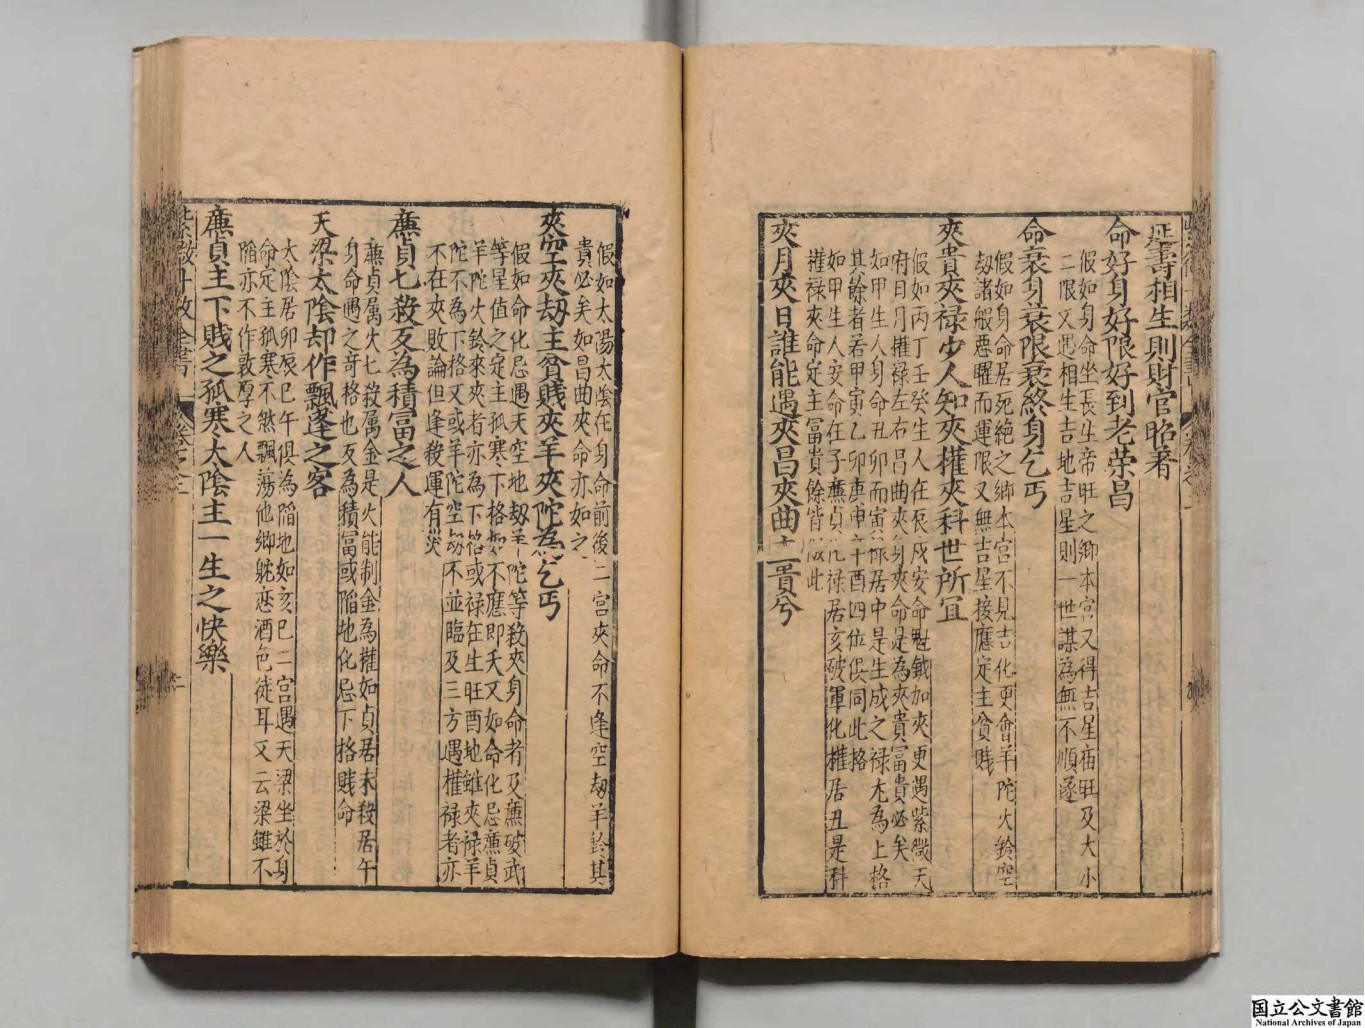 延壽相生則財官昭著
假如身命坐長生帝旺之鄉本宮又得吉星庙旺及大小
二限又遇相生吉地吉星則一世謀為無不順遂
命好身好限好到老荣昌
命衰身衰限衰終身乞丐
假如身命居死絕之鄉本宮不見吉化更會羊陀火鈴空
刼諸般惡曜而運限又無吉星接應定主貧賤
夾貴夾禄少人知夾權夾科世所宜
假如丙丁壬癸生人在辰戌安命魁鉞加夾更遇紫微天
府日月權禄左右昌曲夾身夾命是為夾貴富貴必矣
如甲生人身命丑卯而寅禄居中是生成之禄尤為上格
其餘者若甲寅乙卯庚申辛酉四位俱同此格
如甲生人安命在子廉貞化禄居亥破軍化權居丑是科
權禄夾命定主富貴餘皆倣此
夾月夾日誰能遇夾昌夾曲主貴兮
假如太陽太陰在身命前後二宮夾命不逢空刼羊鈴其
貴必矣如昌曲夾命亦如之
夾空夾刼主貧賤夾羊夾陀為乞丐
假如命化忌遇天空地刼羊陀等殺夾身命者及廉破武
等星值之定主孤寒下格 不應即夭又如命化忌廉貞
羊陀火鈴來夾者亦為下格或禄在生旺酉地雖夾禄羊
陀不為下格又或羊陀空刼不並臨及三方遇權禄者亦
不在夾敗論但逢殺運有災
廉貞七殺反為積富之人
廉貞属火七殺属金是火能制金為權如貞居未殺居午
身命遇之奇格也反為積富或陷地化忌下格賤命
天梁太陰却作飄蓬之客
太陰居卯辰巳午俱為陷地如亥巳二宮遇天梁坐於身
命定主孤寒不然飄蕩他鄉躭恋酒色徒耳又云梁雖不
陷亦不作敦厚之人
廉貞主下賎之孤寒太陰主一生之快樂
紫微斗数全書 卷之二
国立公文書館
National Archives of Japan